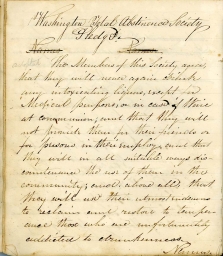 Washington Total Abstinence Society
Pledge.
Names
The Members of this Society agree,
that they will never again Drink
any intoxicating liquor, except for
Medical purposes or in case of thire
at communion, and that they will
not provide them for their friends or
for persons in their employ, and that
they will in all suitable ways dis
countenance the use of them in the
community, and above all, that
they will use their utmost endeavors
to reclaim and restore to temper
ance those who are unfortunately
addicted to drunkenness.
Names